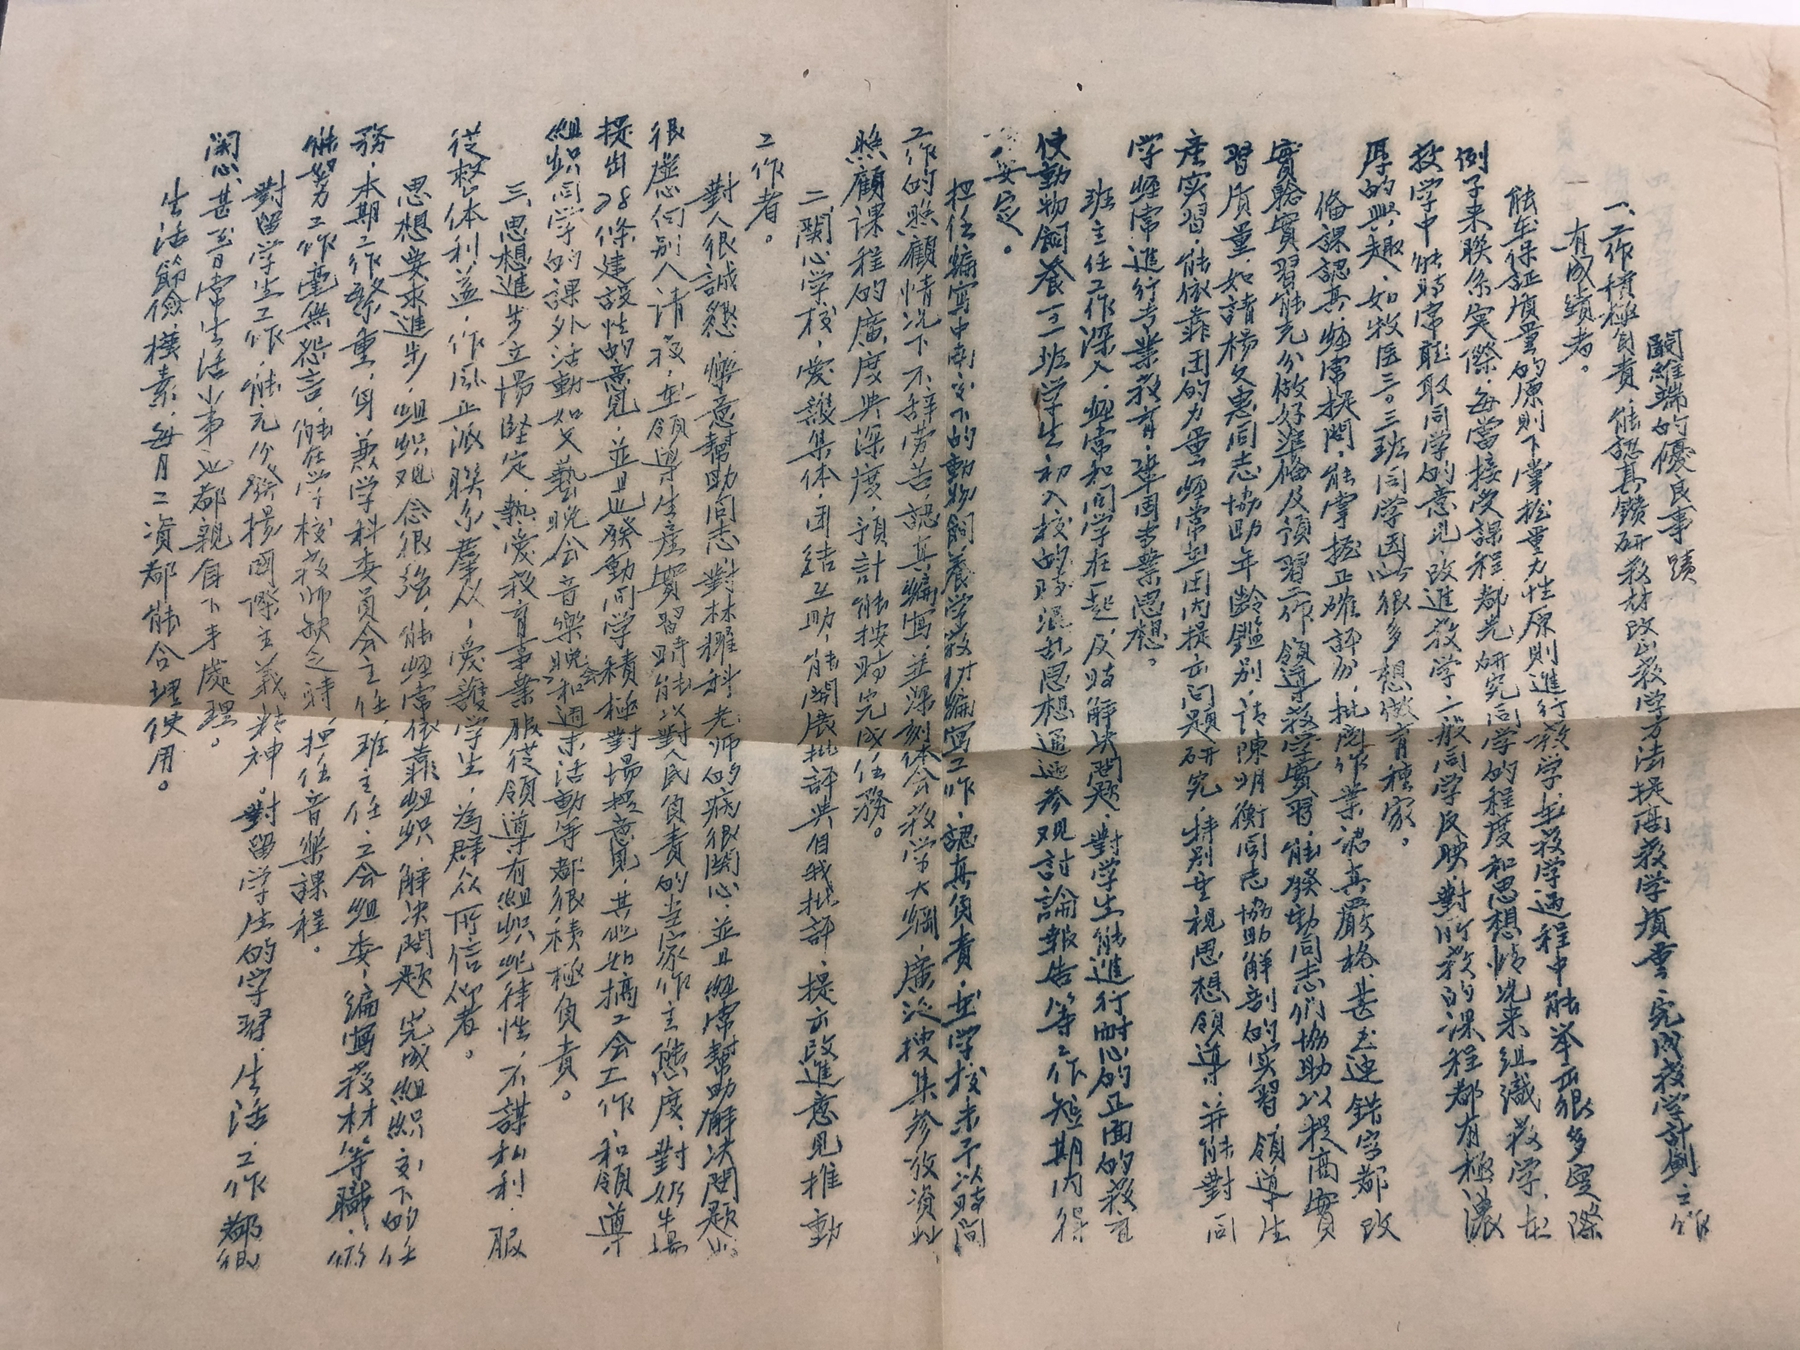 嗣維端的優良事蹟
一、工作積極負責，能認真鑽研教材改出教学方法提高教学质量，完成教学計劃工作
有成績者。
能在保証质量的原則下掌握量力性原則進行教学，在教学過程中能举出很多实際
例子来联系实際，每當接受課程都先研究同学的程度和思想情况来组織教学，在
教学中能時常聽取同学的意見，改進教学，一般同学反映，對所教的课程都有極濃
厚的興趣，如牧医三〇三班同学因此很多想做育種家。
備課認真，经常提問，能掌握正確評分，批改作業認真嚴格，甚至連錯字都改
實驗實習能充分做好準備及預習工作，領導教学實習，能發動同志们協助以提高實
習质量，如請楊文惠同志協助年齡鑑别，请陳明衡同志協助解剖的实習，領導生
産实習，能依靠团的力量，经常在团内提出问题研究，特别重視思想領導，并能對同
学经常進行专業教育，鞏固专業思想。
班主任工作深入，经常和同学在一起，及時解决問题，對学生能進行耐心的正面的教育
使動物飼養三一班学生初入校的時混乱思想通過参观討論報告等工作短期内得
安定。
担任编寫中南区下的動物飼養学教材编寫工作，認真負責，在学校未予以時间
工作的照顧情况下，不辞劳苦，認真编寫，並深刻体会教学大綱，廣泛搜集参攷資料
照顧課程的廣度與深度，預計能按時完成任務。
二、關心学校，愛護集体，团结互助，能開展批評與自我批評，提出改進意見推動
工作者。
對人很誠懇，樂意幫助同志，對林耀科老师的病很關心，並且经常幫助解决問题，
很虚心向别人请教，在領導生産實習時能以對人民負責的当家作主態度，對奶牛場
提出28條建設性的意見，並且也發動同学積極對場提意見，其他如搞工会工作，和領導
组织同学的課外活動如文藝晚会音樂晚会和週末活動等都很積極負責。
三、思想進步立場堅定，熱愛教育事業服從領導有组织纪律性，不謀私利，服
從整体利益，作风正派联系羣众，愛護学生，為群众所信仰者。
思想要求進步，组织观念很強，能经常依靠组织，解决問题，完成组织交下的任
務，本期工作繁重，身兼学科委員会主任，班主任，工会组委，编寫教材等職，仍
能努力工作毫無怨言，能在学校教师缺乏時，担任音樂課程。
對留学生工作，能充分發揚國際主義精神。對留学生的学習、生活、工作都很
関心，甚至日常生活小事也都親自下手處理。
生活節儉樸素，每月工資都能合理使用。